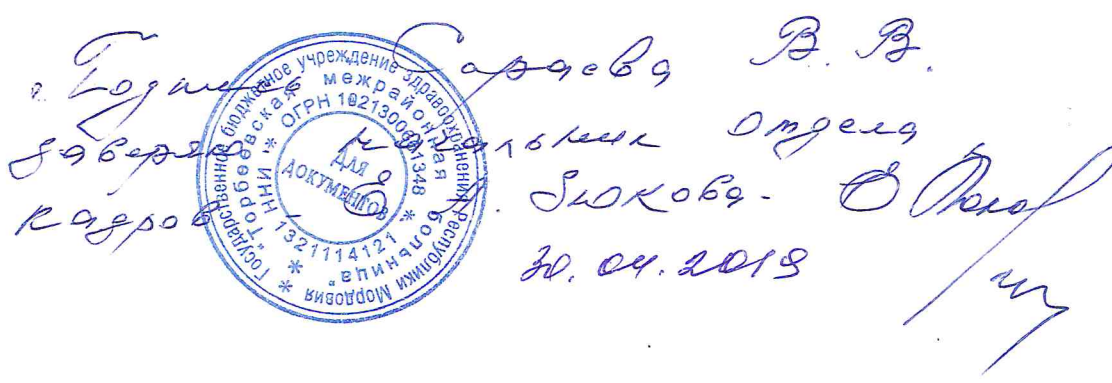 Подпись Сараева В. В.
заверяю начальник отдела
кадров - Зюкова -
30.04.2019
* Государственное бюджетное учреждение здравоохранения Республики Мордовия
* "Торбеевская межрайонная больница"
* ИНН 1321114121 * ОГРН
ДЛЯ
ДОКУМЕНТОВ